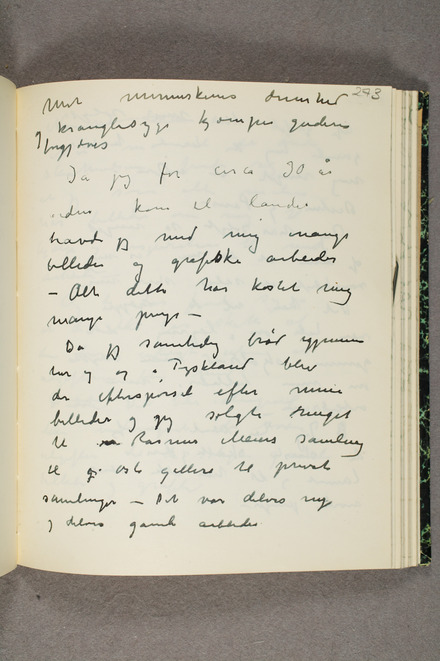 243
Mot menneskenes dumhed
og krangelsyge kjæmper guderne
forgjæves
Da jeg for circa 30 år
siden kom til landet
havde jeg med mig mange
billeder og grafiske arbeider
– Alt dette har kostet mig
mange penge –
Da jeg samtidig brød igjennem
her og og i Tyskland blev
der efterspørsel efter mine
billeder og jeg solgte meget
til Rasmus Meiers samling
til oslo galleri til private
samlinger – Det var delvis nye
og delvis gamle arbeider